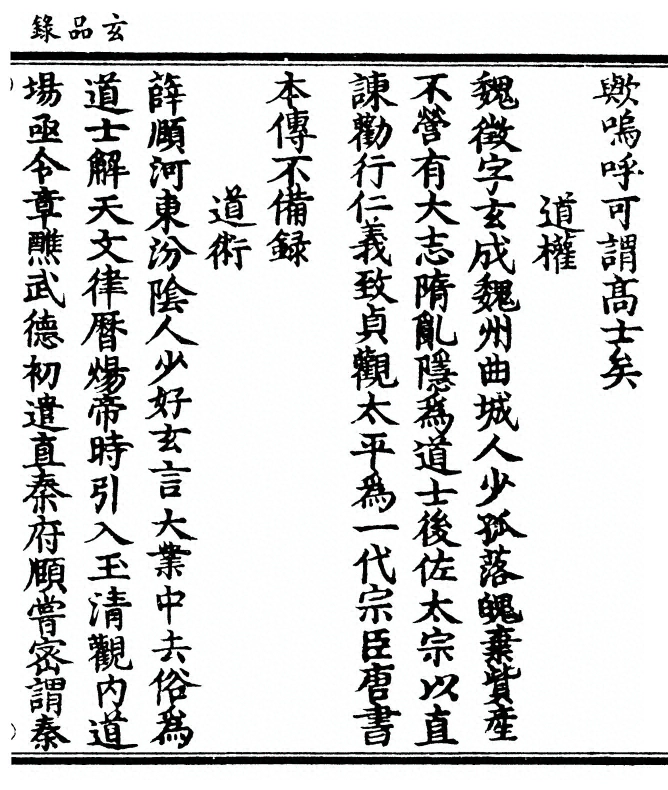 玄品錄
歟嗚呼可謂髙士矣
道權
魏徵字玄成魏州曲城人少孤落魄棄貲產
不營有大志隋亂隱爲道士後佐太宗以直
諫勸行仁義致貞觀太平爲一代宗臣唐書
本傳不備録
道術
薛頥河東汾陰人少好玄言大業中去俗爲
道士解天文律曆煬帝時引入玉清觀内道
場亟令章醮武德初遣直秦府頥嘗密謂秦